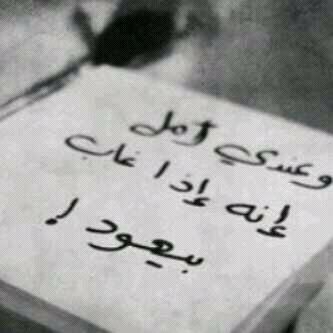 وعندي أمل
إنه إذا غاب
بيعود!